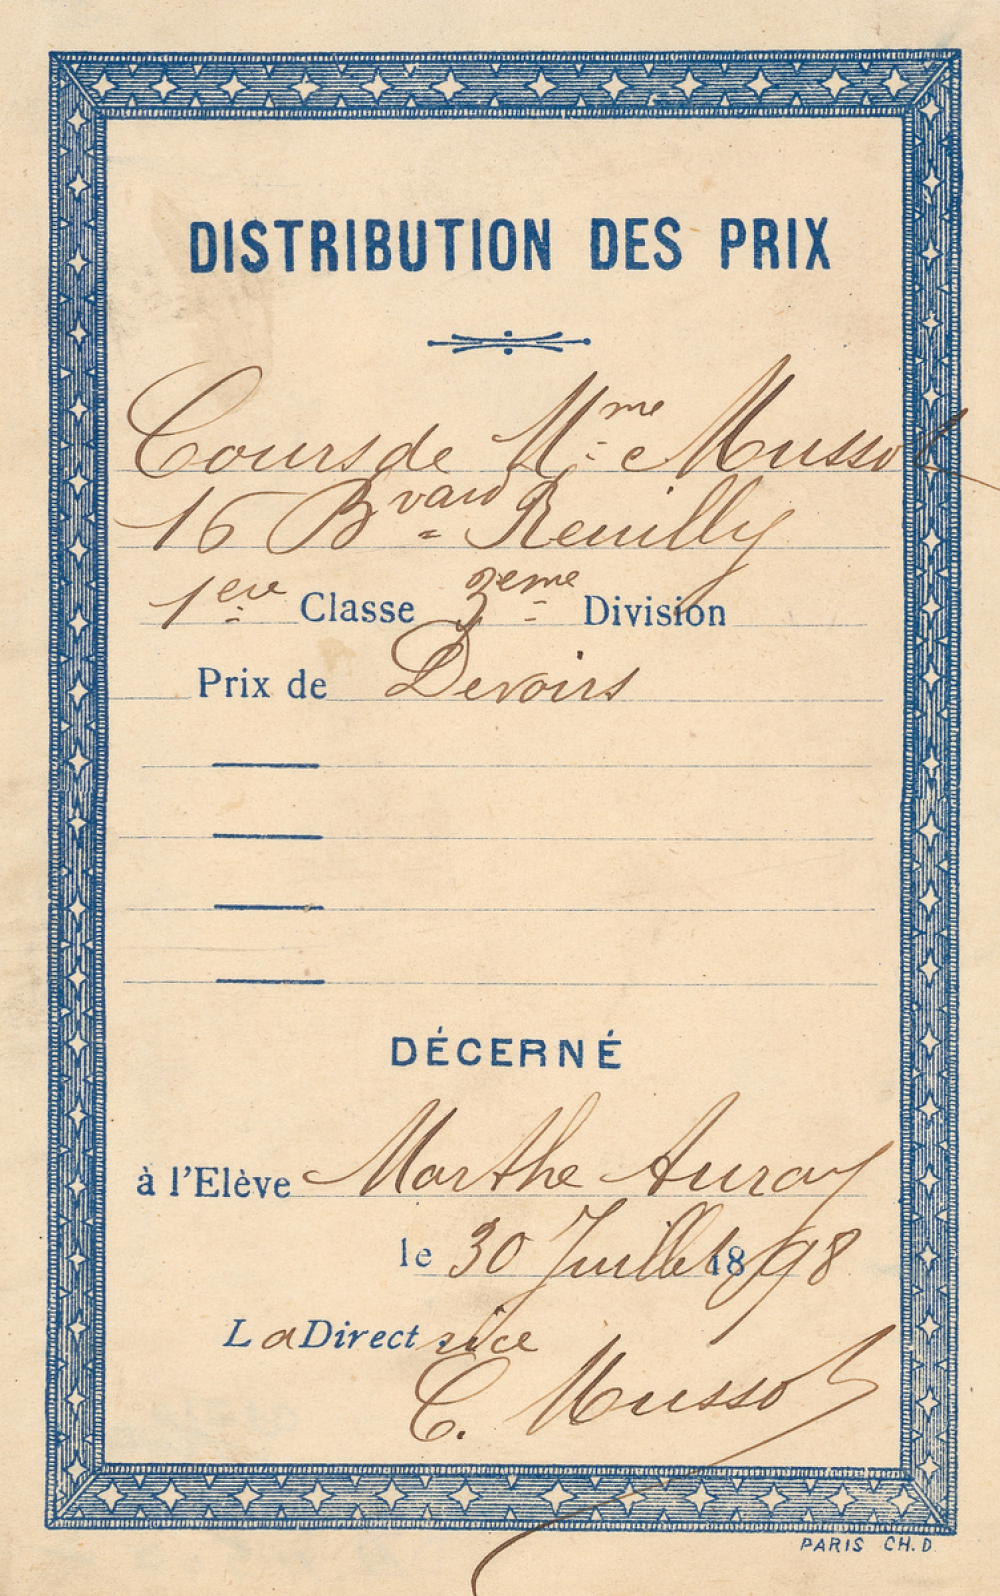 DISTRIBUTION DES PRIX
Cours de Mme Mussot
16 Bvard Reuilly
1ere Classe 3eme Division
Prix de Devoirs
DÉCERNÉ
à l'Elève Marthe Auray
le 30 Juillet 1898
La Directrice
C. Mussot
PARIS CH. D.